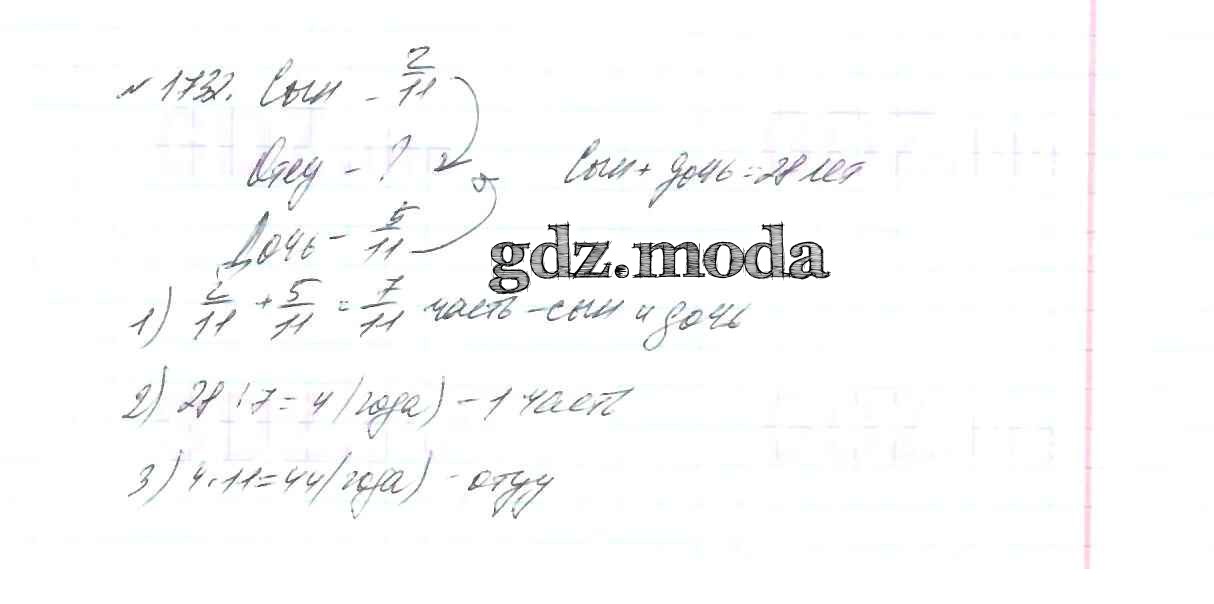 № 1732. Сын - 2/11
Отец - ? Сын + дочь = 28 лет
Дочь - 5/11
gdz.moda
1) 2/11 + 5/11 = 7/11 часть - сын и дочь
2) 28 : 7 = 4 (года) - 1 часть
3) 4 · 11 = 44 (года) - отцу